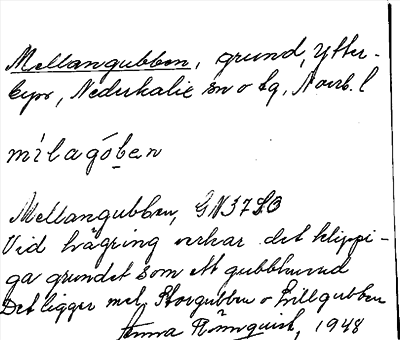 Mellangubben, grund, Ytter-
byn, Nederkalix sn o sg, Norrb. l
mìlagóben
Mellangubben, GN37SO
Vid hägring verkar det klippi-
ga grundet som ett gubbhuvud
Det ligger mel. Storgubben o Lillgubben
Anna Rönnquist, 1948